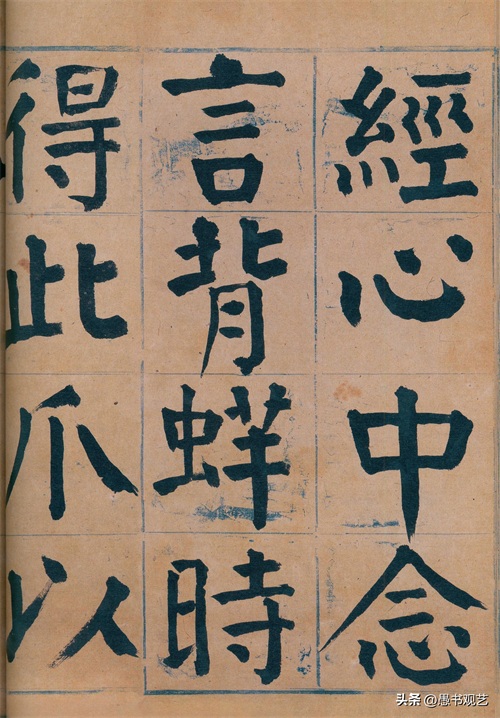 經心中念
言背蛘時
得此爪以
头条 @愚书观艺